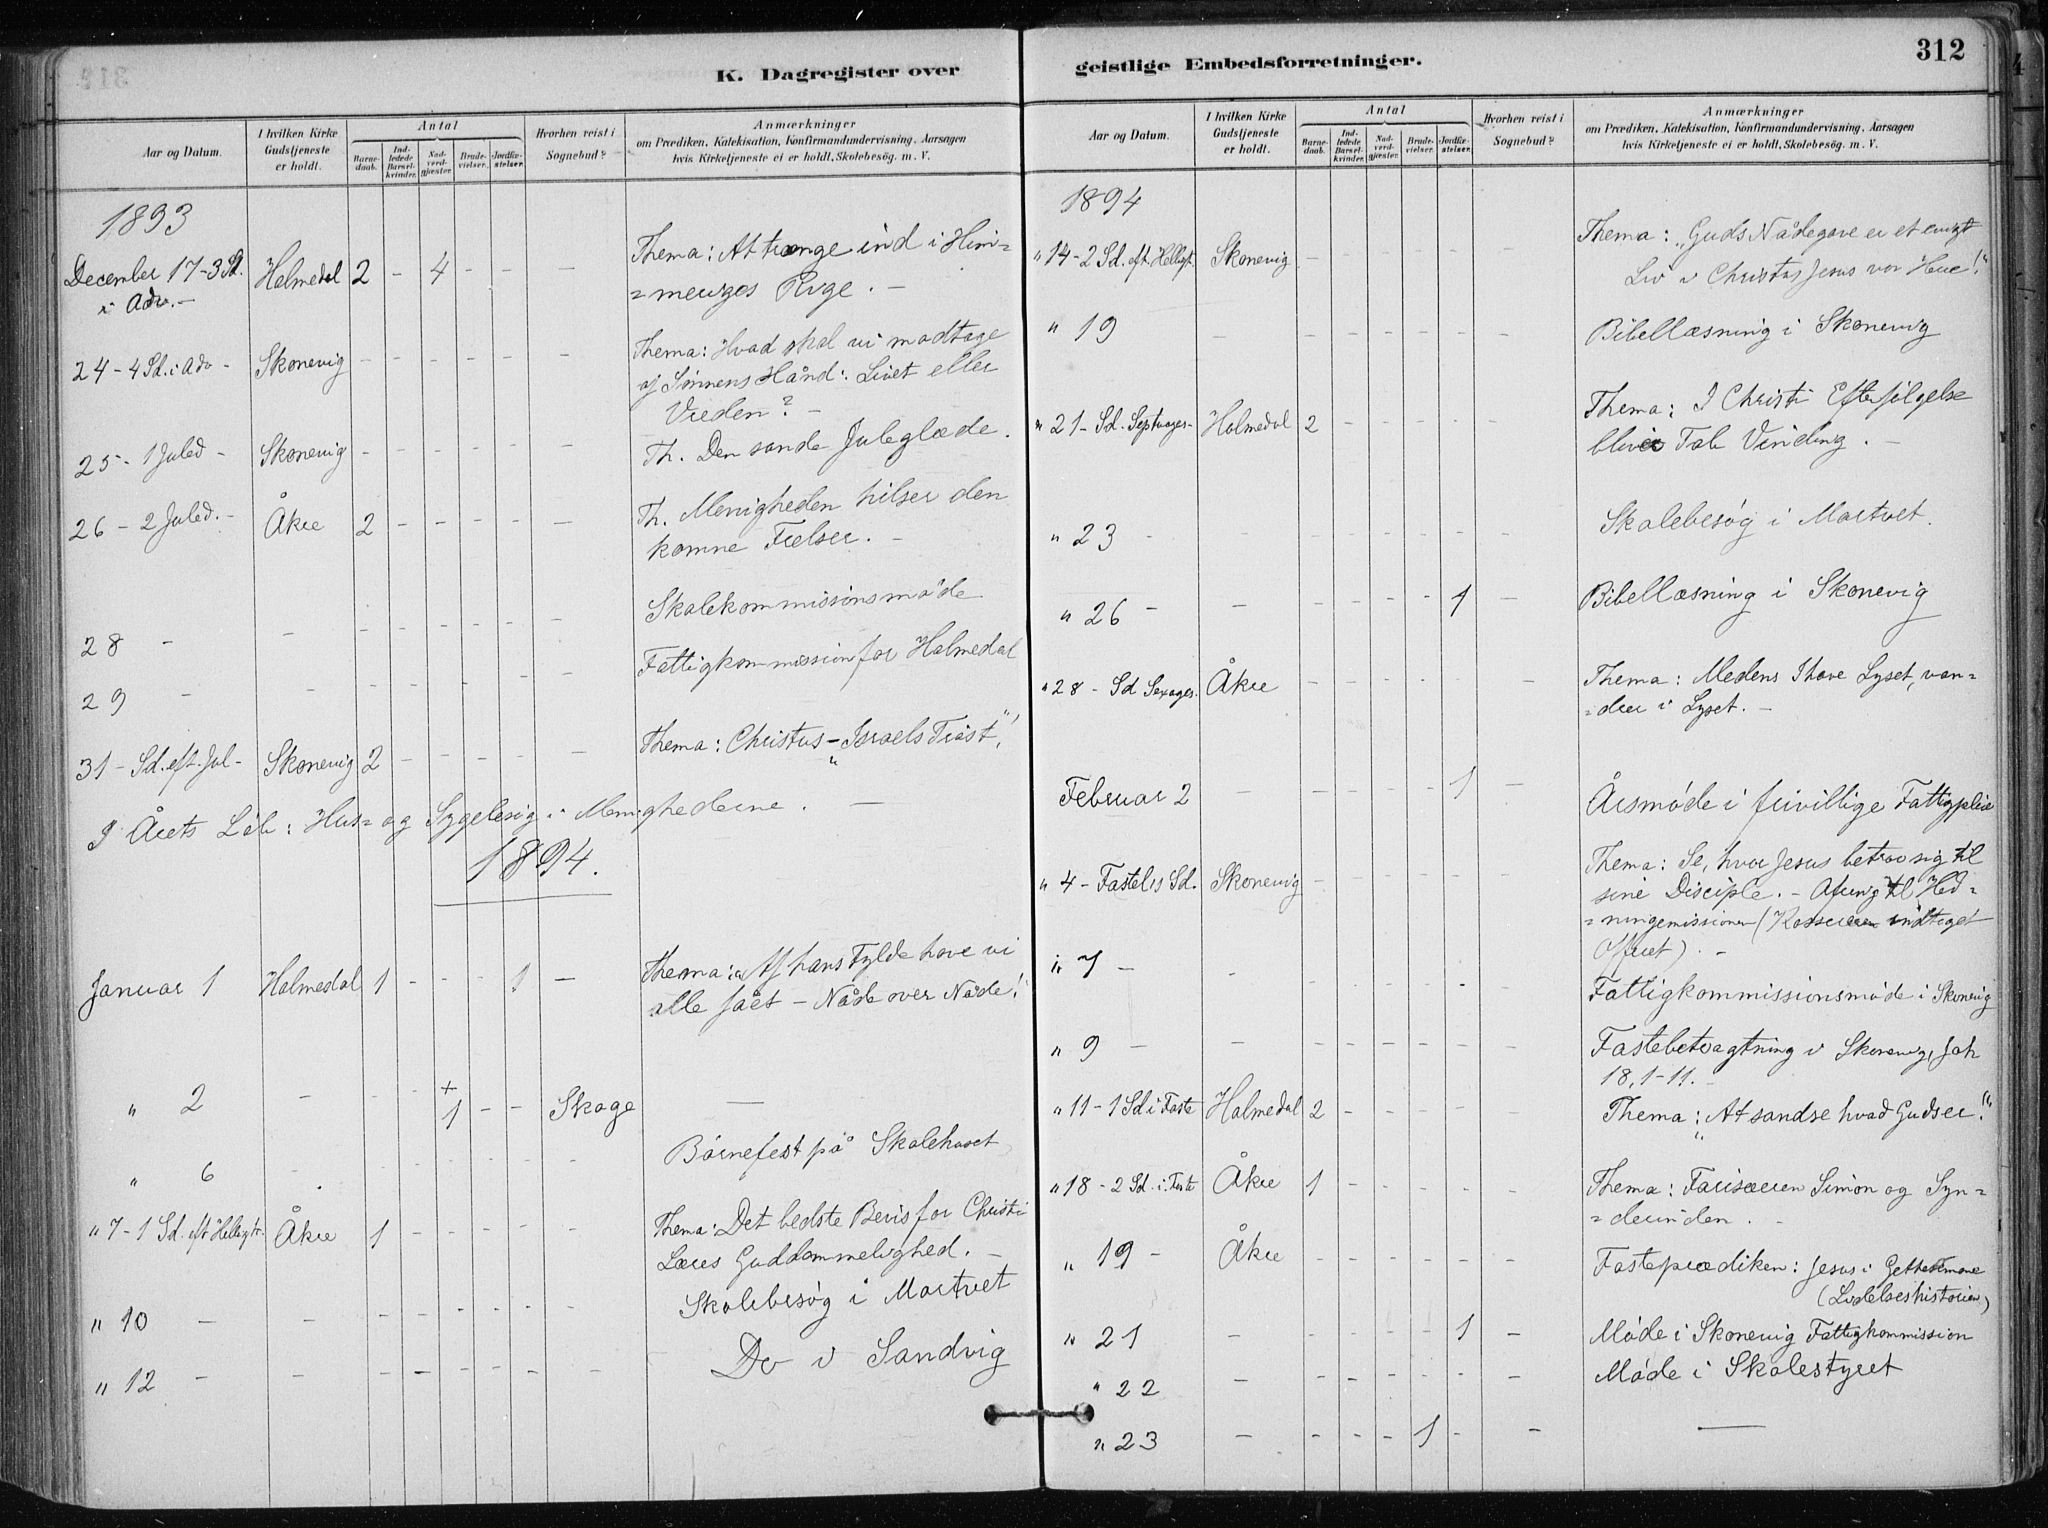 K. Dagregister over
Aar og Datum.
I hvilken Kirke Gudstjeneste er holdt.
Antal
Barnedaab.
Indledede Barselkvinder.
Nadverdgjæster.
Brudevielser.
Jordfæstelser.
Hvorhen reist i Sognebud?
Anmærkninger
om Prædiken, Katekisation, Konfirmandundervisning, Aarsagen
hvis Kirketjeneste ei er holdt, Skolebesög. m. V.
1893
December 17-3 Sd. i Adv. - Holmedal 2 - 4 - - - Thema: At trænge ind i Him=
=meriges Rige. -
24 - 4 Sd. i Adv - Skonevig - - - - - - Thema: Hvad skal vi modtage
af Sønnens Hånd: Livet eller
Vreden? -
25 - 1 Juled - Skonevig - - - - - - Th. Den sande Juleglæde.
26 - 2 Juled. - Åkre 2 - - - - - Th. Menigheden hilser den
komne Frelser. -
28 - - - - - - - - Skolekommissionsmøde
29 - - - - - - - Fattigkommission for Holmedal
31 - Sd. eft. Jul - Skonevig 2 - - - - - Thema: Christus - "Israels Trøst",
I Årets Løb: Hus- og Sygebesøg i Menighederne. -
1894.
Januar 1 Holmedal 1 - - - 1 - Thema: "Af hans Fylde have vi
alle fået - Nåde over Nåde!"
" 2 - - - + 1 - - Skoge -
" 6 - - - - - - - Børnefest på Skolehuset
" 7-1 Sd. eft Helligtr. Åkre 1 - - - - - Thema: Det bedste Bevis for Christi
Læres Guddommelighed. -
" 10 - - - - - - - - Skolebesøg i Mortvet
" 12 - - - - - - - - Do i Sandvig
geistlige Embedsforretninger.
312
Aar og Datum.
I hvilken Kirke Gudstjeneste er holdt.
Antal
Barnedaab.
Indledede Barselkvinder.
Nadverdgjæster.
Brudevielser.
Jordfæstelser.
Hvorhen reist i Sognebud?
Anmærkninger
om Prædiken, Katekisation, Konfirmandundervisning, Aarsagen
hvis Kirketjeneste ei er holdt, Skolebesög. m. V.
1894
" 14 - 2 Sd. eft. Helligt. Skonevig - - - - - - Thema: "Guds Nådegave er et evigt
Liv i Christus Jesus vor Herre!"
" 19 - - - - - - - Bibellæsning i Skonevig
" 21 - Sd. Septuages - Holmedal 2 - - - - - Thema: I Christi Efterfølgelse
bliver Tab Vinding. -
" 23 - - - - - - - Skolebesøg i Mortvet.
" 26 - - - - - - 1 - Bibellæsning i Skonevig
" 28 - Sd Sexages. Åkre - - - - - - Thema: Medens I have Lyset, van=
=drer i Lyset. -
Februar 2 - - - - - 1 - Årsmøde i frivillige Fattigpleie
" 4 - Fastel.s Sd. Skonevig - - - - - - Thema: Se, hvor Jesus betror sig til
sine Disciple. - Ofring til Hed=
=ningemissionen (Kassereren indtaget
Offret). -
" 7 - - - - - - - - Fattigkommissionsmøde i Skonevig
" 9 - - - - - - - - Fastebetragtning i Skonevig, Joh
18, 1-11. -
" 11 - 1 Sd i Faste Holmedal 2 - - - - - Thema: "At sandse hvad Guds er!"
" 18 - 2 Sd. i Faste Åkre 1 - - - - - Thema: Farisæeren Simon og Syn=
=derinden. -
" 19 - Åkre - - - - - - Fasteprædiken: Jesus i Gethsemane
(Lidelseshistorien)
" 21 - - - - - 1 - Møde i Skonevig Fattigkommission
" 22 - - - - - - - Møde i Skolestyret
" 23 - - - - 1 - - -